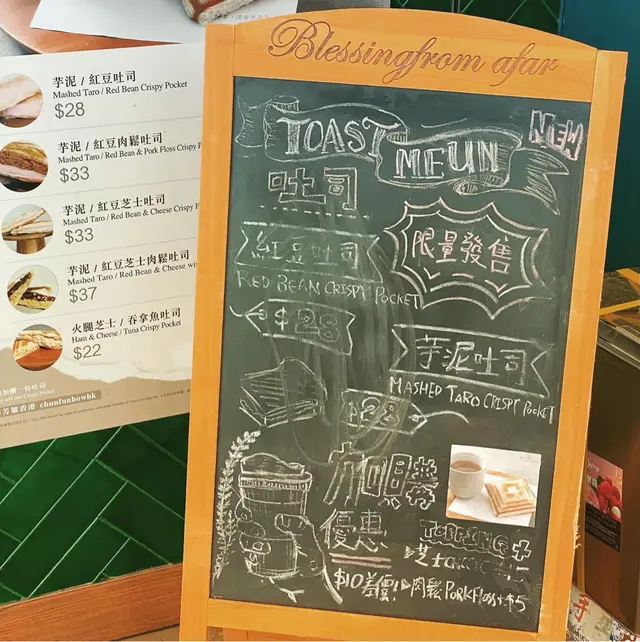 芋泥 / 紅豆吐司
Mashed Taro / Red Bean Crispy Pocket
$28
芋泥 / 紅豆肉鬆吐司
Mashed Taro / Red Bean & Pork Floss Crispy
$33
芋泥 / 紅豆芝士吐司
Mashed Taro / Red Bean & Cheese Crispy
$33
芋泥 / 紅豆芝士肉鬆吐司
Mashed Taro / Red Bean & Cheese
$37
火腿芝士 / 吞拿魚吐司
Ham & Cheese / Tuna Crispy Pocket
$22
chunfunhowhk
Blessing from afar
NEW
TOAST
MEUN
吐司
限量發售
紅豆吐司
RED BEAN CRISPY POCKET
$28
芋泥吐司
MASHED TARO CRISPY POCKET
$28
加購
優惠
TOPPING
芝士
肉鬆 PORK FLOSS +$5